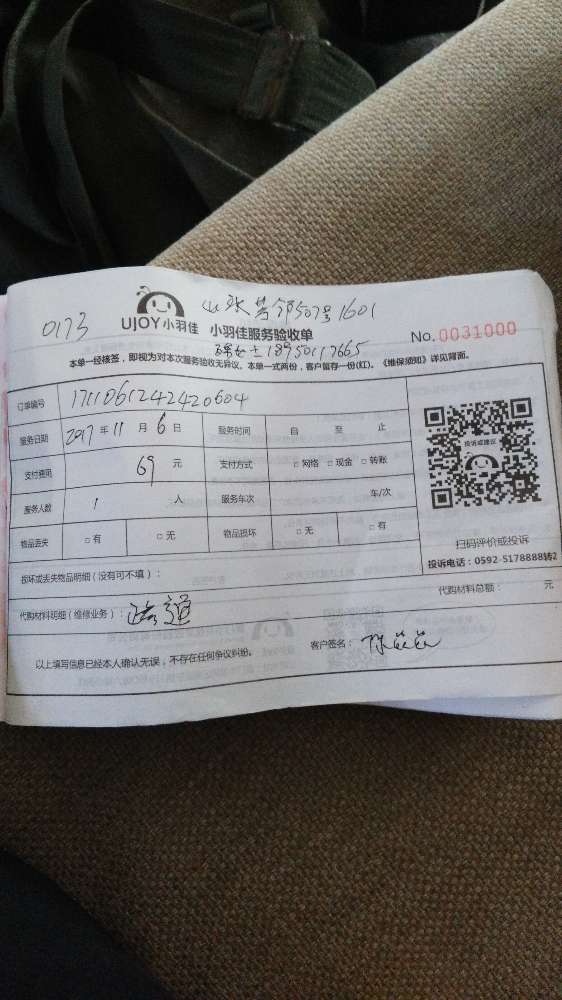 0173
山水芳邻507号1601
UJOY小羽佳 小羽佳服务验收单
No.0031000
女士18950117665
本单一经核签，即视为对本次服务验收无异议。本单一式两份，客户留存一份(红)。《维保须知》详见背面。
订单编号 1711061242420604
服务日期 2017年11月6日 服务时间 自 至 止
支付费用 69元 支付方式 □网络 □现金 □转账
服务人数 1 人 服务车次 车/次
物品丢失 □有 □无 物品损坏 □无 □有
投诉或建议
扫码评价或投诉
投诉电话：0592-5178888转2
损坏或丢失物品明细（没有可不填）：
代购材料明细（维修业务）：疏通
代购材料总额： 元
以上填写信息已经本人确认无误，不存在任何争议纠纷。
客户签名：